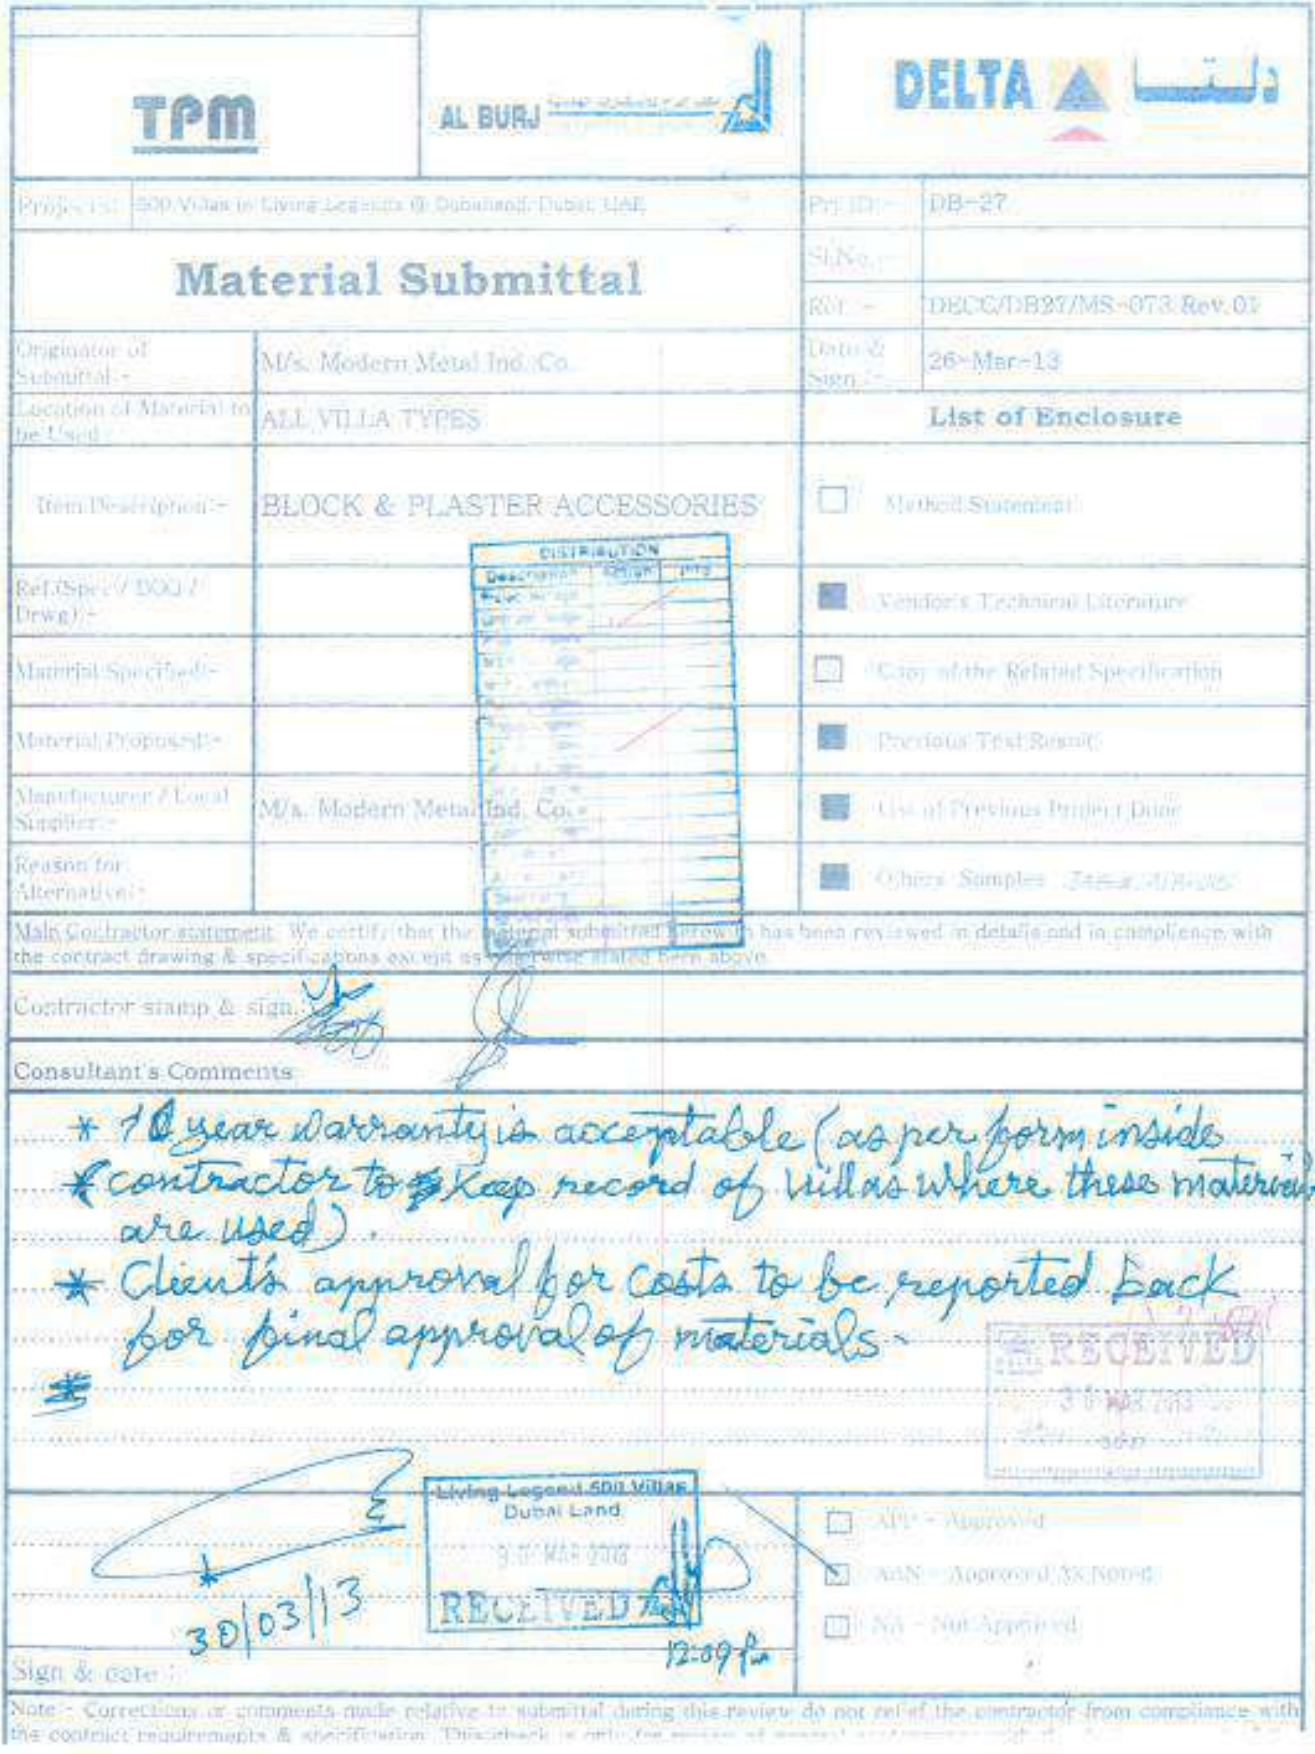 TPM
AL BURJ
DELTA دلتا
Project: 500 Villas in Living Legends @ Dubailand, Dubai, UAE
Prj ID:- DB-27
Material Submittal
Sl.No.:-
Ref. :- DECC/DB27/MS-073 Rev.01
Originator of Submittal:- M/s. Modern Metal Ind. Co.
Date & Sign :- 26-Mar-13
Location of Material to be Used:- ALL VILLA TYPES
List of Enclosure
Item Description:- BLOCK & PLASTER ACCESSORIES
Method Statement
DISTRIBUTION
Description Action Info
Ref.(Spec / BOQ / Drwg) :-
Vendor's Technical Literature
Material Specified:-
Copy of the Related Specification
Material Proposed:-
Previous Test Result
Manufacturer / Local Supplier:- M/s. Modern Metal Ind. Co.
List of Previous Project Done
Reason for Alternative:-
Others Samples
Main Contractor statement: We certify that the material submitted herewith has been reviewed in details and in compliance with
the contract drawing & specifications except as otherwise stated here above.
Contractor stamp & sign.
Consultant's Comments
* 10 year warranty is acceptable (as per form inside
* contractor to keep record of villas where these material
are used).
* Client's approval for costs to be reported back
for final approval of materials.
RECEIVED
30 MAR 2013
Living Legend 500 Villas
Dubai Land
30 MAR 2013
RECEIVED
30/03/13
12:09 pm
APP - Approved
AAN - Approved As Noted
NA - Not Approved
Sign & date :
Note :- Corrections or comments made relative to submittal during this review do not relief the contractor from compliance with
the contract requirements & specification. This check is only for